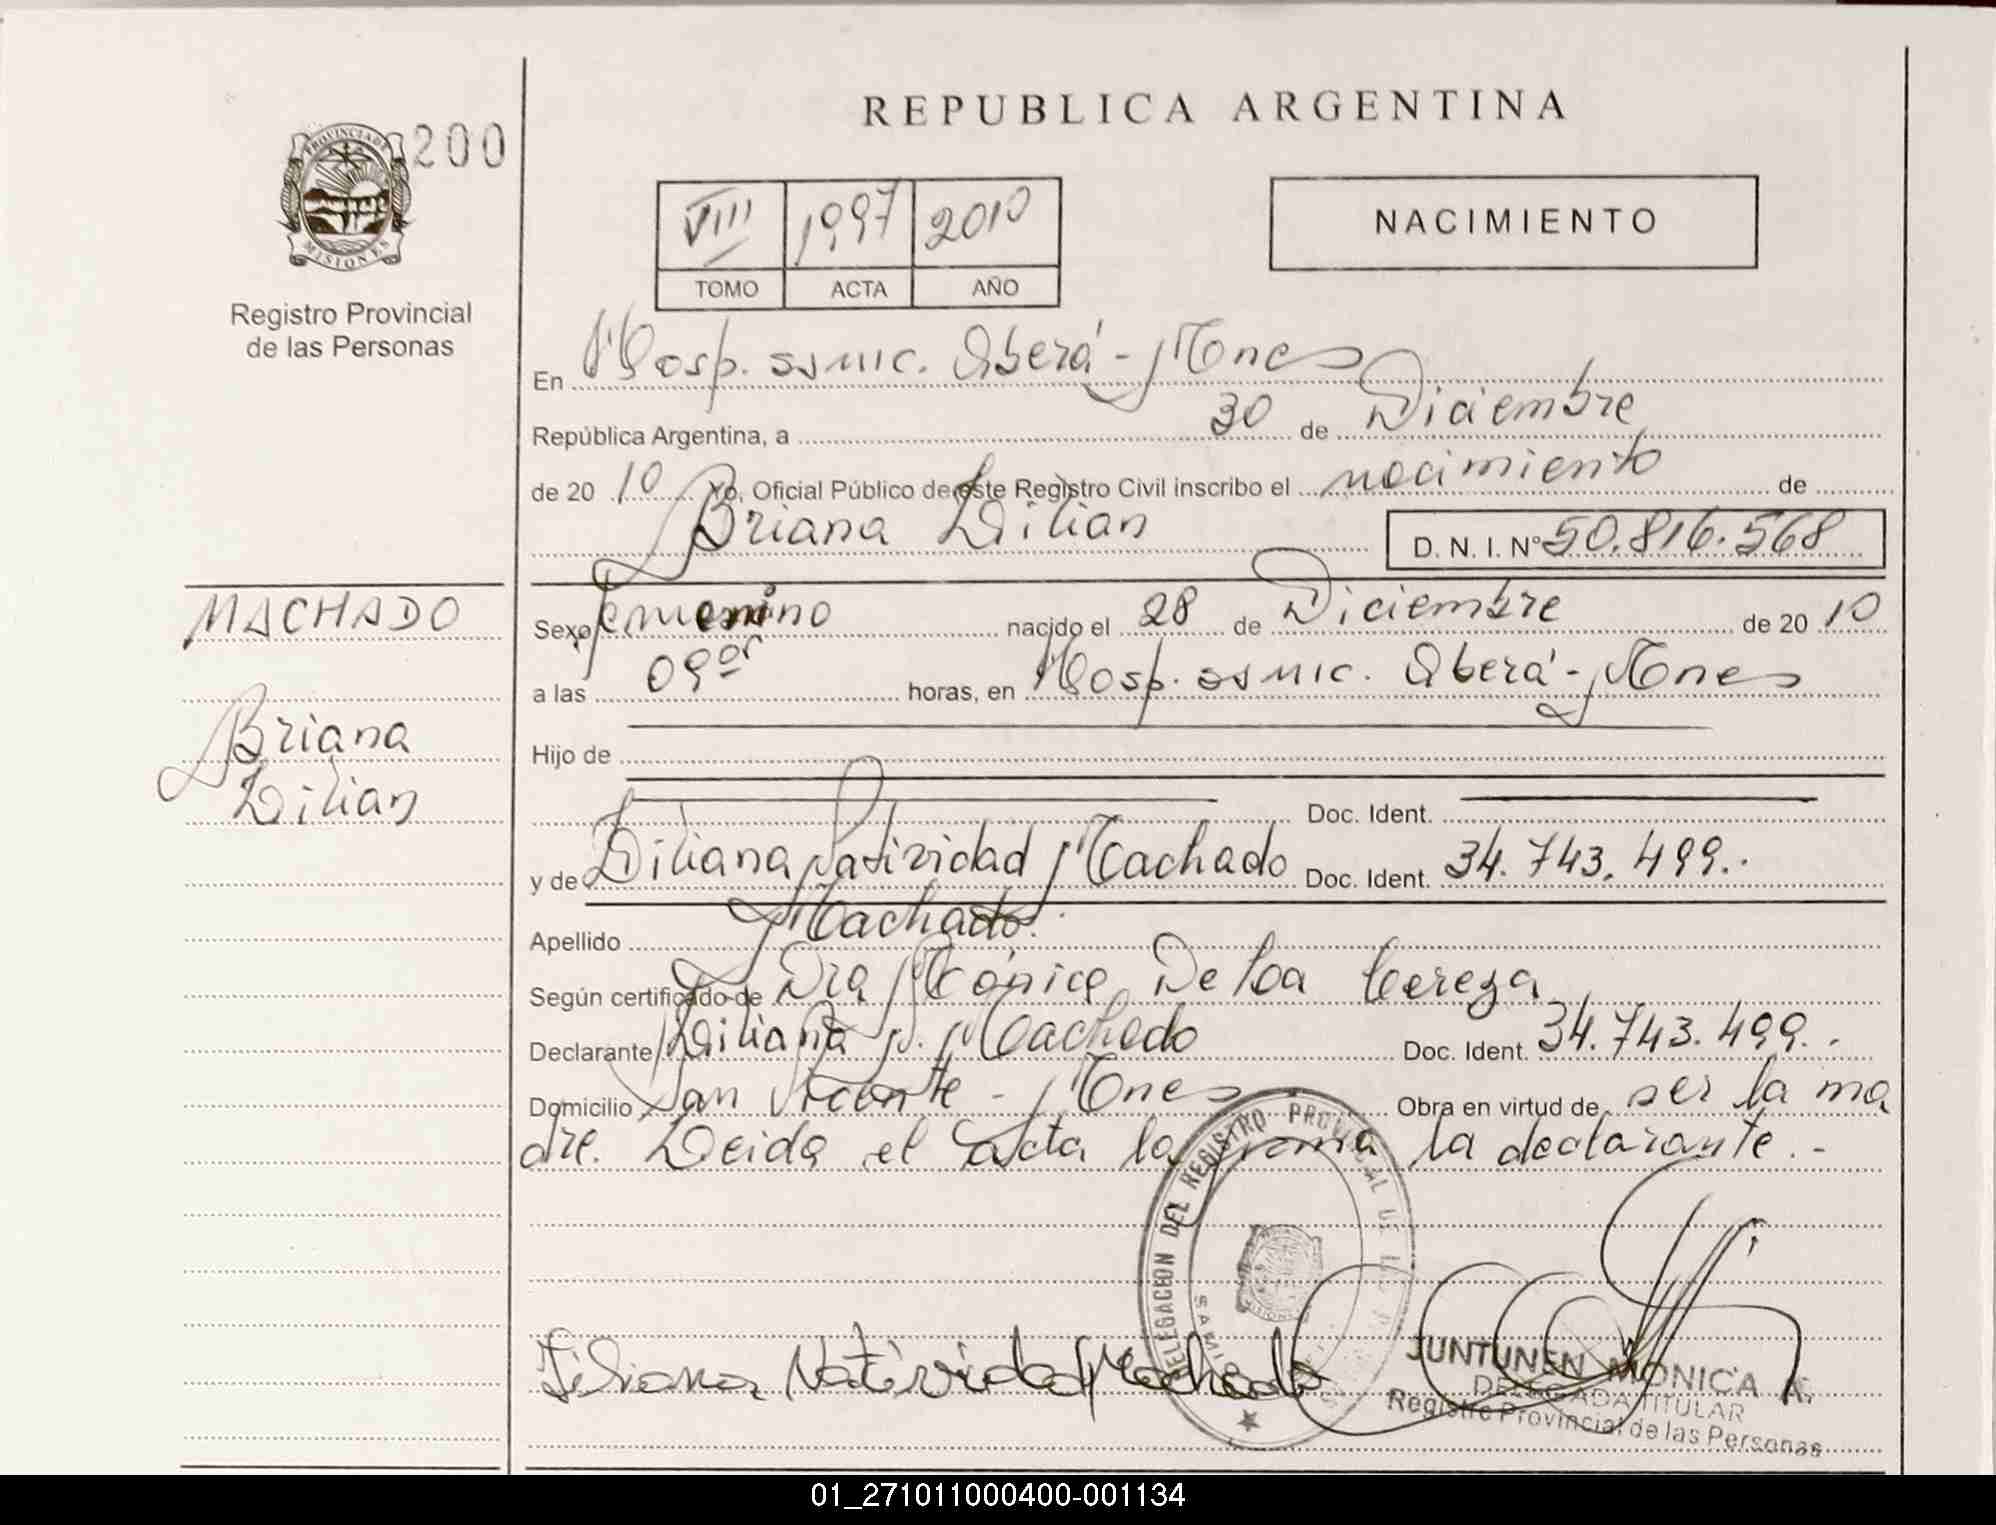 REPUBLICA ARGENTINA
PROVINCIA DE
MISIONES
200
Registro Provincial
de las Personas
VIII 1997 2010
TOMO ACTA AÑO
NACIMIENTO
En Hosp. SSMIC. Oberá - Mnes
República Argentina, a 30 de Diciembre
de 20 10 Yo, Oficial Público de este Registro Civil inscribo el nacimiento de
Briana Lilian D. N. I. Nº 50.816.568
MACHADO
Briana
Lilian
Sexo femenino nacido el 28 de Diciembre de 20 10
a las 09 horas, en Hosp. SSMIC. Oberá - Mnes
Hijo de
Doc. Ident.
y de Liliana Natividad Machado Doc. Ident. 34.743.499.-
Apellido Machado.
Según certificado de Dra Mónica De La Cereza
Declarante Liliana N. Machado Doc. Ident. 34.743.499.-
Domicilio San Vicente - Mnes Obra en virtud de ser la ma
dre. Leida el acta la firma la declarante.-
DELEGACION DEL REGISTRO PROVINCIAL DE
Liliana Natividad Machado
JUNTUNEN MONICA A.
DELEGADA TITULAR
Registro Provincial de las Personas
01_271011000400-001134